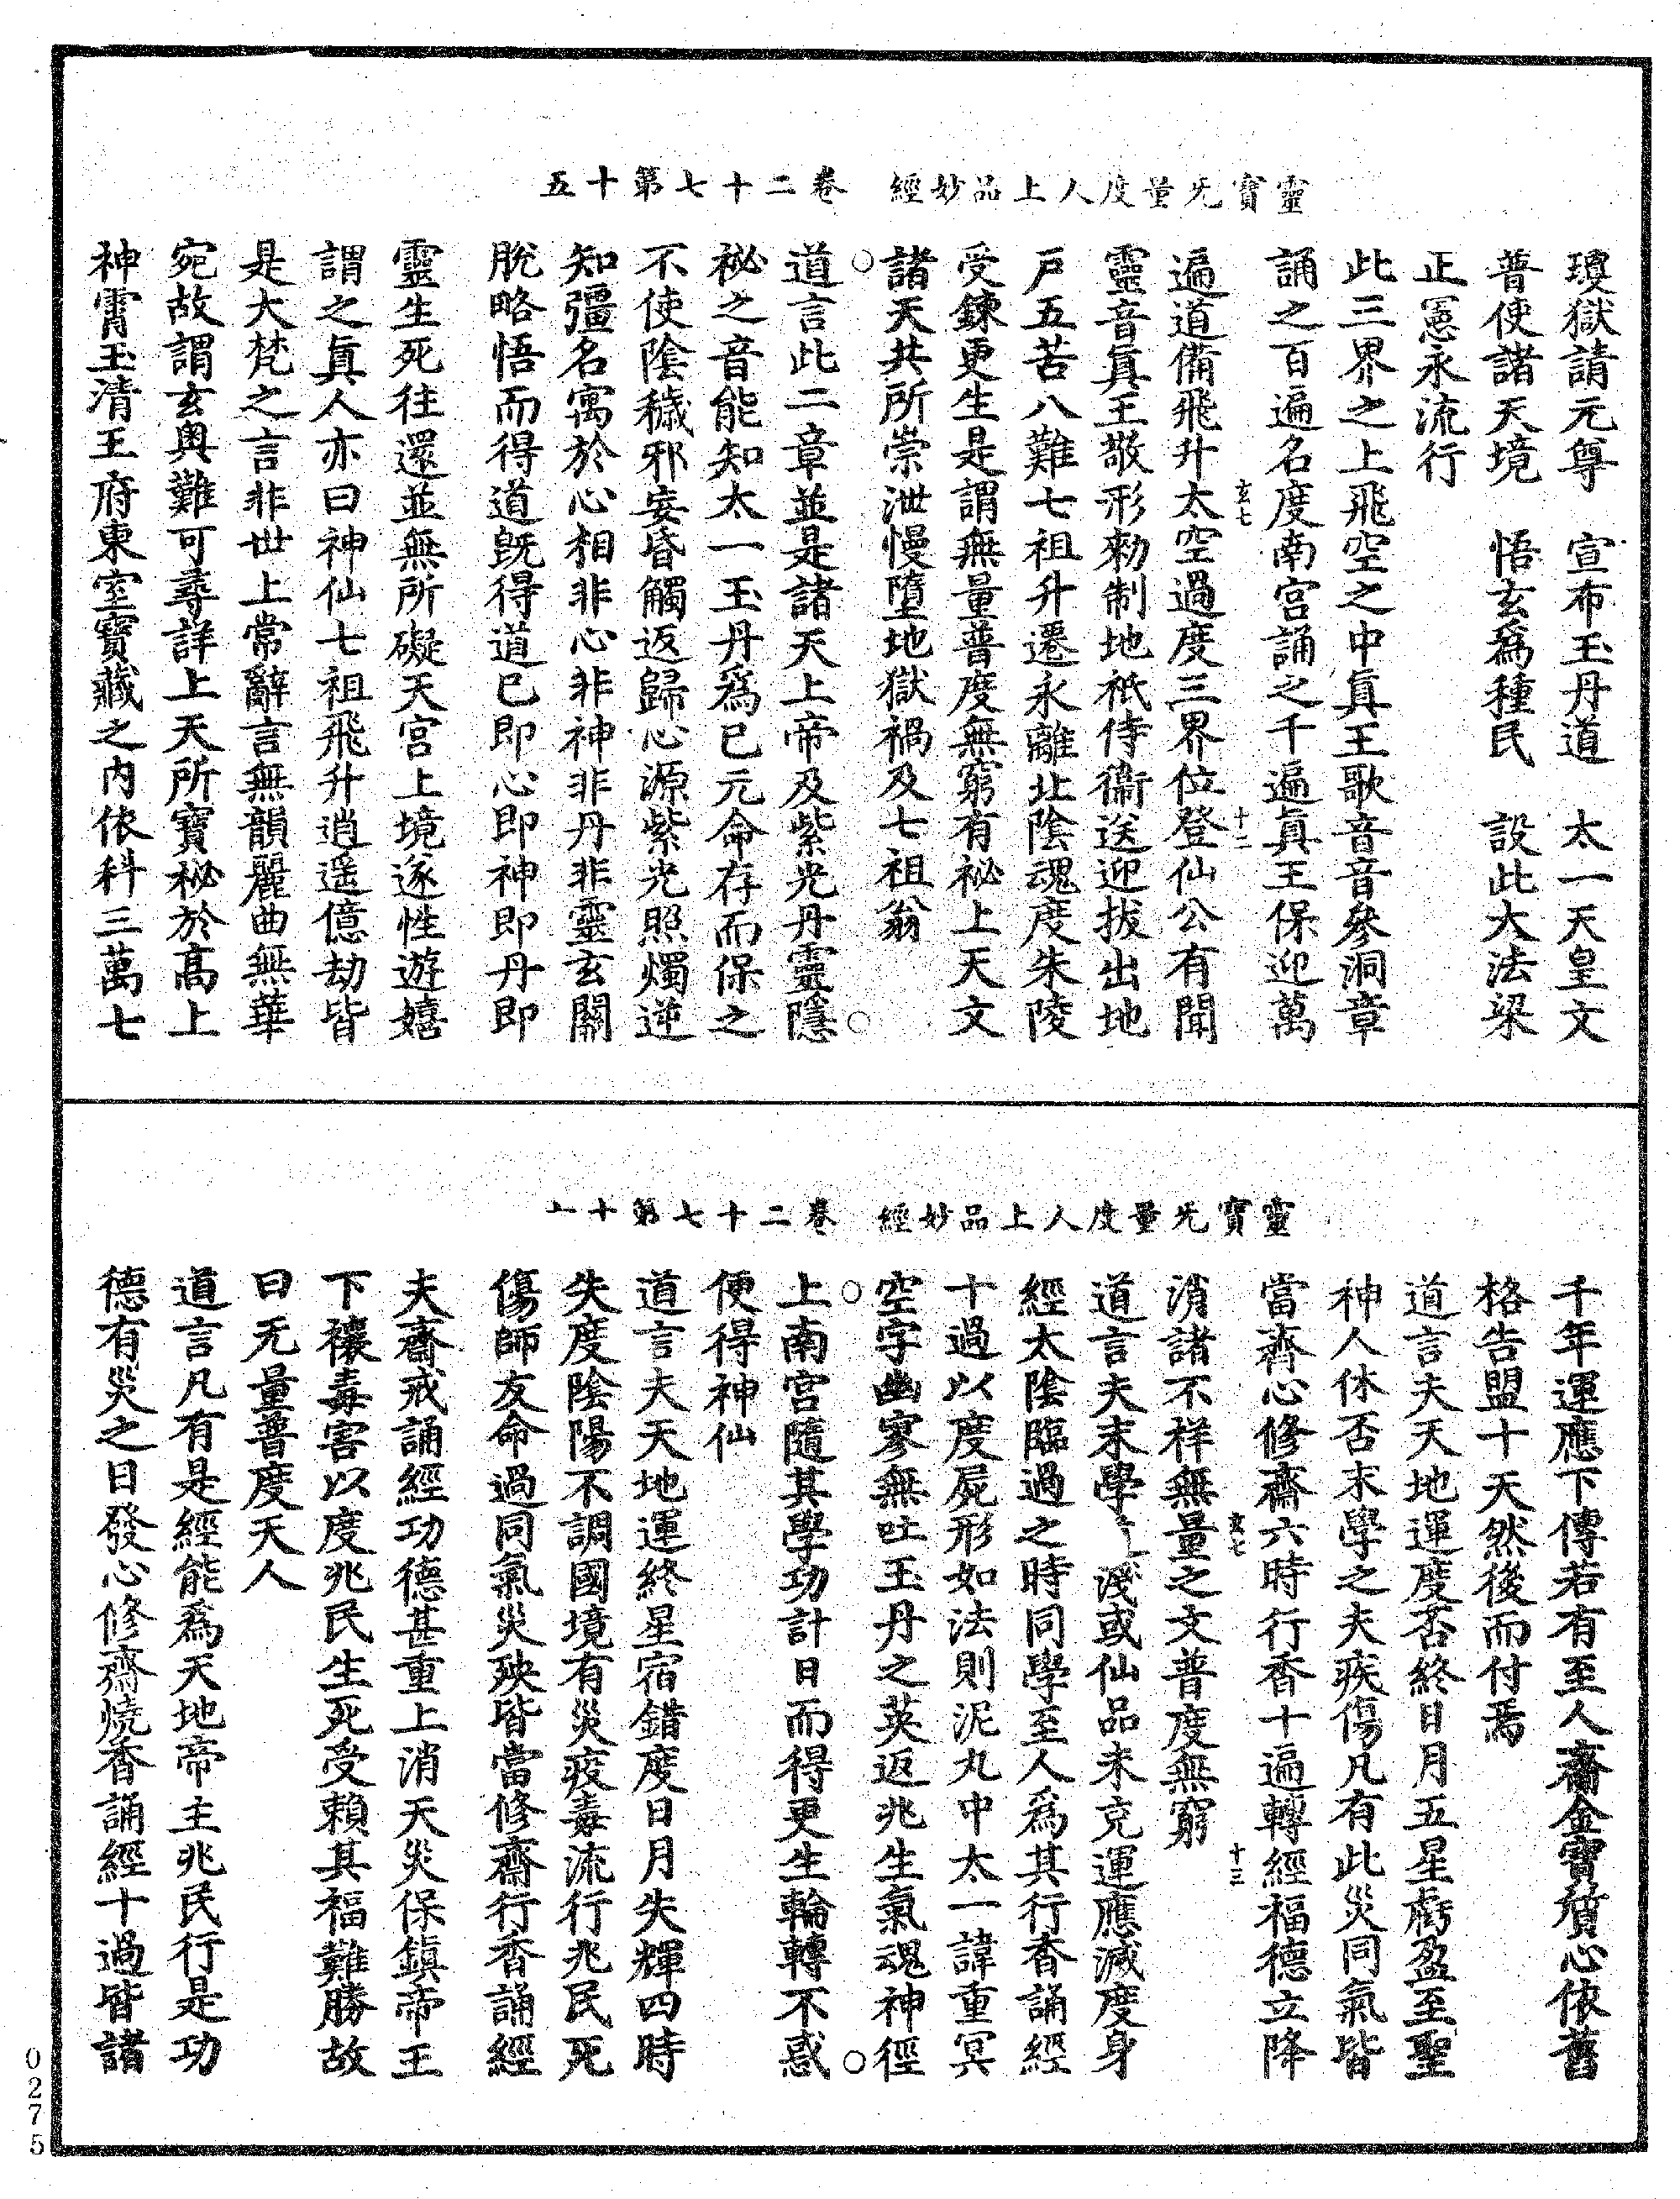 靈寶无量度人上品妙經　卷二十七第十五
瓊獄請元尊　宣布玉丹道　太一天皇文
普使諸天境　悟玄爲種民　設此大法梁
正憲永流行
此三界之上飛空之中眞王歌音音參洞章
誦之百遍名度南宮誦之千遍眞王保迎萬
玄七　十二
遍道備飛升太空過度三界位登仙公有聞
靈音眞王敬形勑制地祇侍衞送迎拔出地
戸五苦八難七祖升遷永離北陰魂度朱陵
受鍊更生是謂無量普度無窮有祕上天文
諸天共所崇泄慢墮地獄禍及七祖翁
道言此二章並是諸天上帝及紫光丹靈隱
祕之音能知太一玉丹爲已元命存而保之
不使陰穢邪妄昏觸返歸心源紫光照燭逆
知彊名寓於心相非心非神非丹非靈玄關
脫略悟而得道旣得道已即心即神即丹即
靈生死往還並無所礙天宮上境遂性遊嬉
謂之眞人亦曰神仙七祖飛升逍遥億劫皆
是大梵之言非世上常辭言無韻麗曲無華
宛故謂玄奥難可尋詳上天所寶祕於高上
神霄玉清王府東室寶藏之內依科三萬七
靈寶无量度人上品妙經　卷二十七第十
千年運應下傳若有至人齎金寶質心依舊
格告盟十天然後而付焉
道言夫天地運度否終日月五星虧盈至聖
神人休否末學之夫疾傷凡有此災同氣皆
當齊心修齋六時行香十遍轉經福德立降
玄七　十三
消諸不祥無量之文普度無窮
道言夫末學上淺或仙品未克運應滅度身
經太陰臨過之時同學至人爲其行香誦經
十過以度屍形如法則泥丸中太一諱重冥
空字幽寥無吐玉丹之英返兆生氣魂神徑
上南宮隨其學功計日而得更生輪轉不惑
便得神仙
道言夫天地運終星宿錯度日月失輝四時
失度陰陽不調國境有災疫毒流行兆民死
傷師友命過同氣災殃皆當修齋行香誦經
夫齋戒誦經功德甚重上消天災保鎮帝王
下禳毒害以度兆民生死受賴其福難勝故
曰无量普度天人
道言凡有是經能爲天地帝主兆民行是功
德有災之日發心修齋燒香誦經十過皆諸
0275